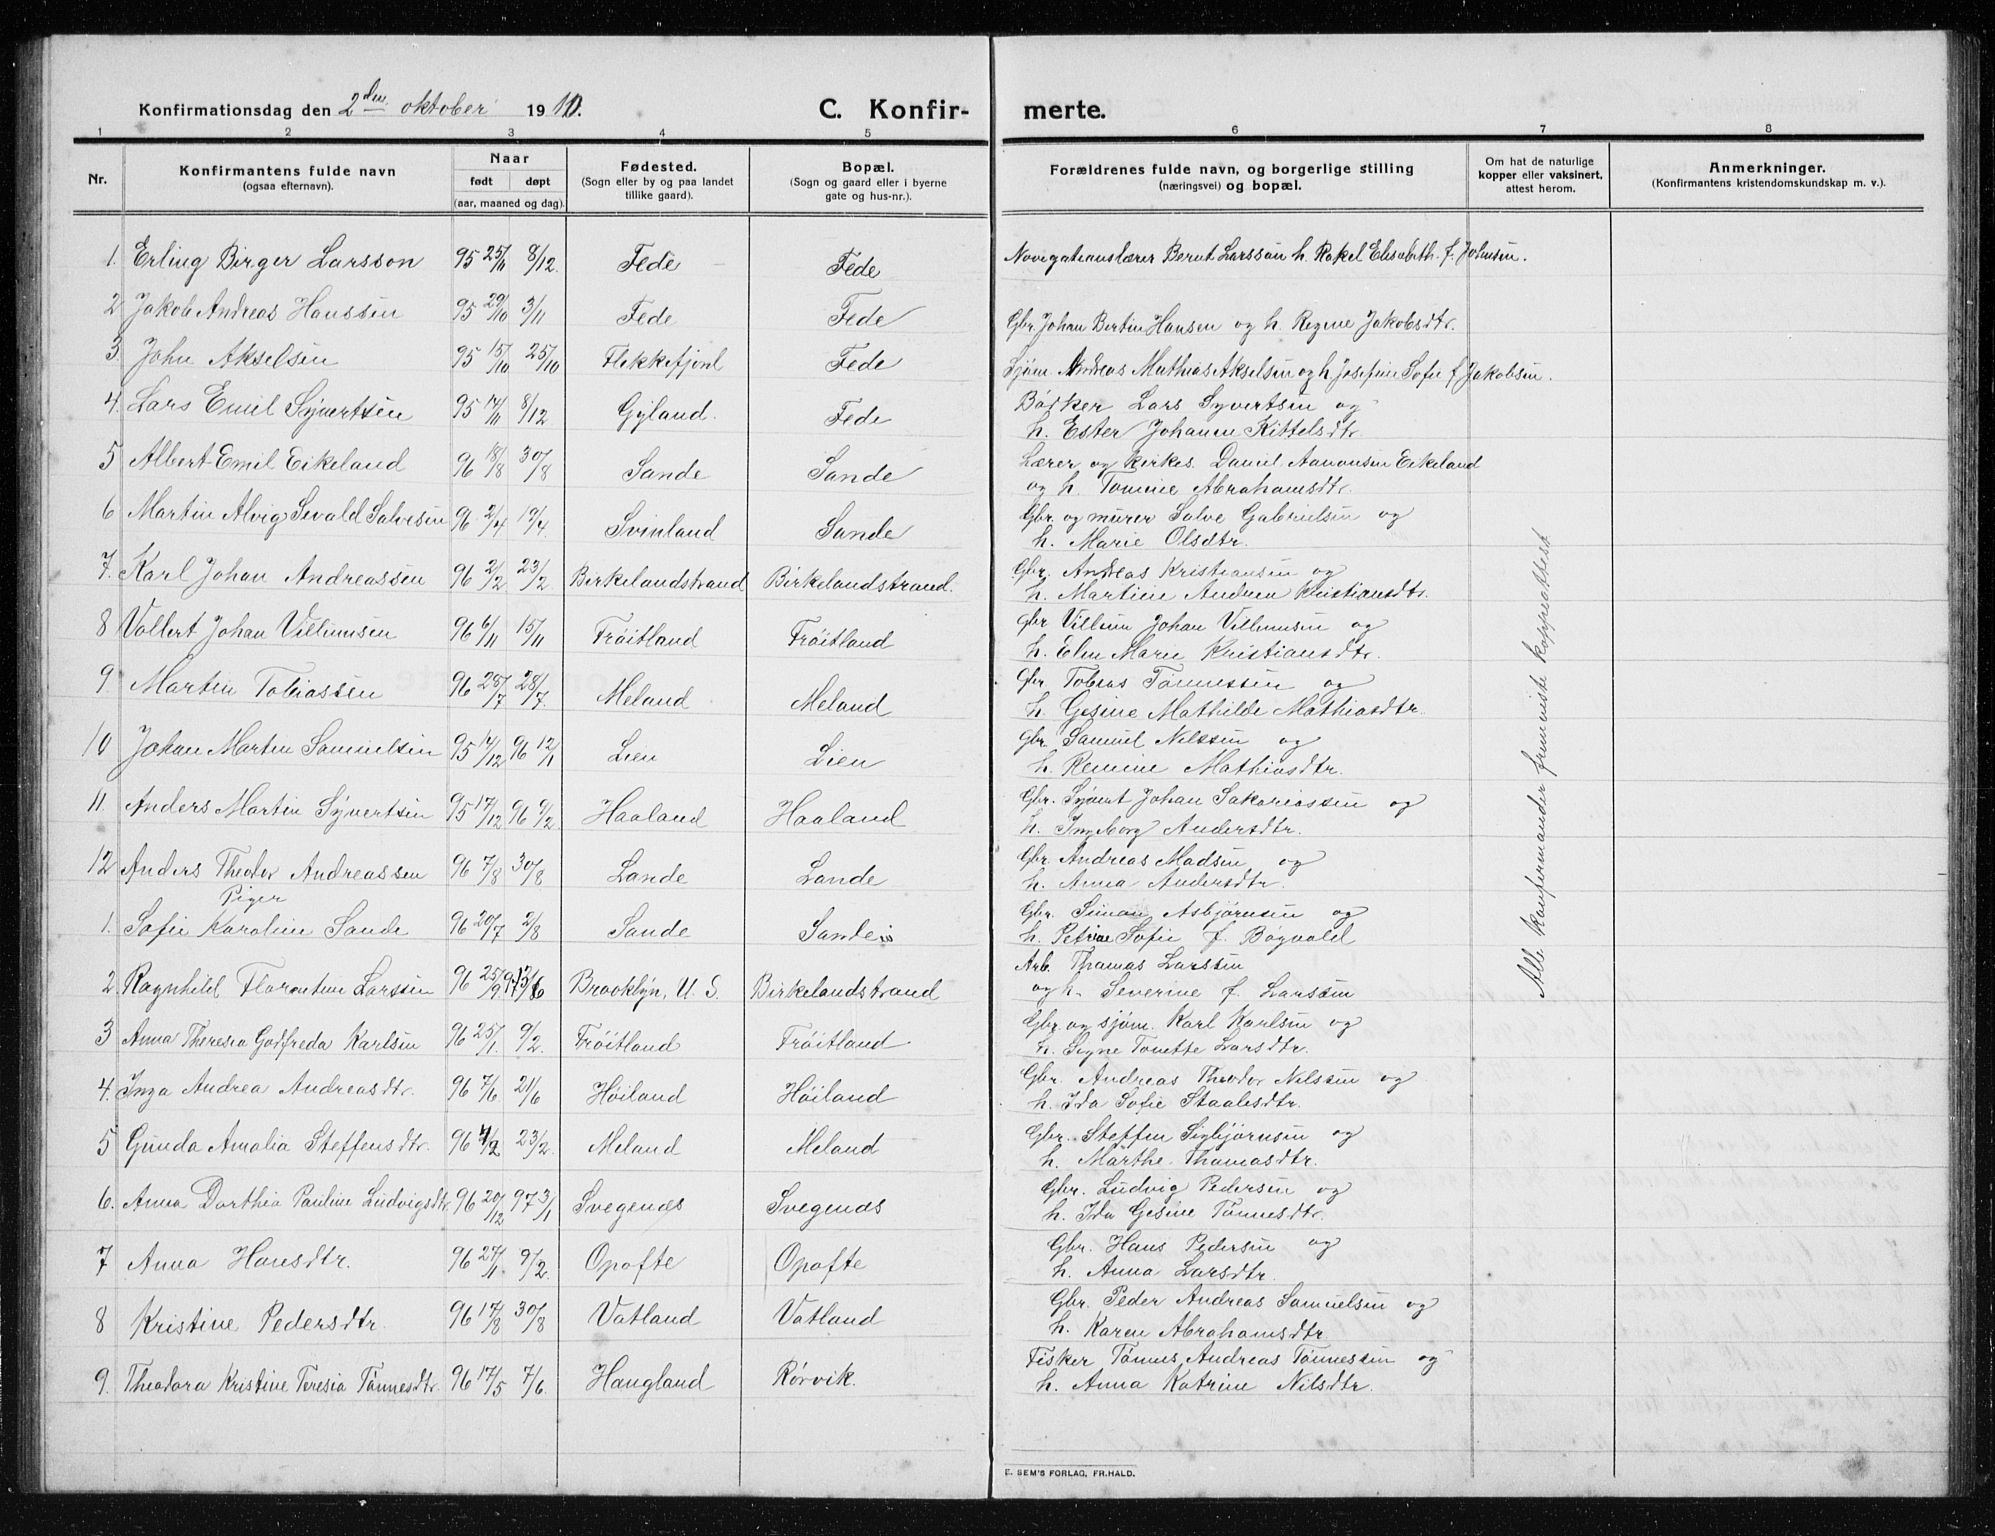 Konfirmationsdag den 2den oktober 1910. C. Konfir- merte.
1 2 3 4 5 6 7 8
Nr. Konfirmantens fulde navn (ogsaa efternavn). Naar født døpt (aar, maaned og dag). Fødested. (Sogn eller by og paa landet tillike gaard). Bopæl. (Sogn og gaard eller i byerne gate og hus-nr.). Forældrenes fulde navn, og borgerlige stilling (næringsvei) og bopæl. Om hat de naturlige kopper eller vaksinert, attest herom. Anmerkninger. (Konfirmantens kristendomskundskap m. v.).
1. Erling Birger Larsson 95 25/11 8/12. Fede Fede Navigationslærer Bernt Larsson h. Rakel Elisabeth f. Johnsen.
2 Jakob Andreas Hanssen 95 29/10 3/11 Fede Fede Gbr. Johan Bertin Hansen og h. Regine Jakobsdtr.
3. John Akselsen 95 15/10 25/10 Flekkefjord Fede Sjøm. Andreas Mathias Akselsen og h Josefine Sofie f Jakobsen.
4. Lars Emil Syvertsen 95 14/11 8/12 Gyland. Fede Bødker Lars Syvertsen og
h. Ester Johanne Kittelsdtr.
5 Albert Emil Eikeland 96 18/8 30/8 Sande Sande Lærer og kirkes. Daniel Aanonsen Eikeland
og h. Tomine Abrahamsdtr.
6 Martin Alvig Sevald Salvesen 96 2/4 19/4. Svinland Sande Gbr. og murer Salve Gabrielsen og
h. Marie Olsdtr.
7. Karl Johan Andreassen 96 2/2 23/2 Birkelandstrand Birkelandstrand. Gbr. Andreas Kristiansen og
h. Martine Andrea Kristiansdtr.
8 Vollert Johan Villumsen 96 6/11 15/11 Frøitland Frøitland gbr Villum Johan Villumsen og
h. Elen Marie Kristiansdtr.
9 Martin Tobiassen 96 25/7 28/7. Meland Meland gbr. Tobias Tønnessen og
h. Gesine Mathilde Mathiasdtr.
10 Johan Martin Samuelsen 95 14/12 96 12/1 Lien Lien gbr. Samuel Nilssen og
h. Remine Mathiasdtr.
11. Anders Martin Syvertsen 95 17/12 96 9/2. Haaland Haaland Gbr. Syvert Johan Sakariassen og
h. Ingeborg Andersdtr.
12 Anders Theodor Andreassen 96 7/8 30/8 Lande Lande Gbr. Andreas Madsen og
h. Anna Andersdtr.
Piger
1. Sofie Karoline Sande 96 20/7 2/8 Sande Sande Gbr. Simon Asbjørnsen og
h. Petrine Sofie f. Bøgvald
2. Ragnhild Florentine Larsen 96 25/9 97 13/6 Brooklyn, U. S. Birkelandstrand Arb. Thomas Larssen
og h. Severine f. Larssen
3 Anna Theresia Godfreda Karlsen 96 25/1. 9/2. Frøitland Frøitland Gbr og sjøm. Karl Karlsen og
h. Signe Tonette Larsdtr.
4. Inga Andrea Andreasdtr. 96 7/6 21/6 Høiland Høiland Gbr. Andreas Theodor Nilssen og
h. Ida Sofie Staalesdtr.
5 Gunda Amalia Steffensdtr. 96 4/2 23/2. Meland Meland Gbr. Steffen Sigbjørnsen og
h. Marthe Thomasdtr.
6. Anna Dorthea Pauline Ludvigsdtr. 96 20/12 97 3/1 Svegenes Svegenes Gbr. Ludvig Pedersen og
h. Ida Gesine Tønnesdtr.
7 Anna Hansdtr. 96 27/1. 9/2. Opofte Opofte Gbr. Hans Pedersen og
h. Anna Larsdtr.
8 Kristine Pedersdtr. 96 17/8 30/8 Vatland Vatland Gbr. Peder Andreas Samuelsen og
h. Karen Abrahamsdtr.
9. Theodora Kristine Teresia Tønnesdtr. 96 17/5 7/6. Haugland Rørvik. Fisker Tønnes Andreas Tønnessen og
h. Anna Katrine Nilsdtr.
Alle konfermander fremviste koppeattest
E. SEM'S FORLAG, FR.HALD.